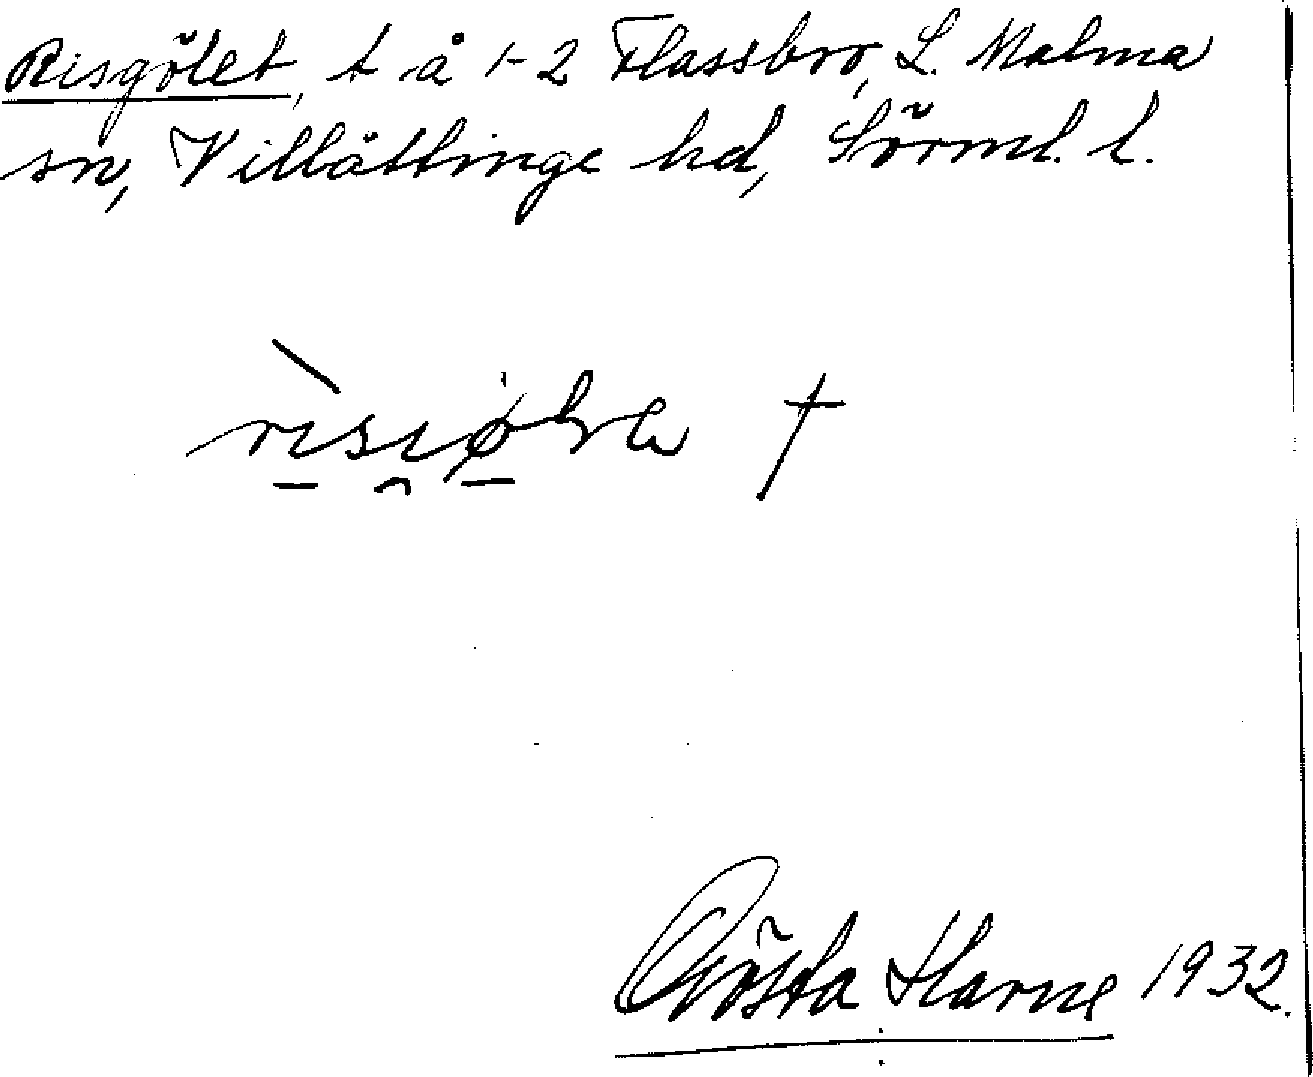 Risgölet, t å 1-2 Flassbro, L. Malma
sn, Villåttinge hd, Sörml. l.
†
Gösta Harne 1932.